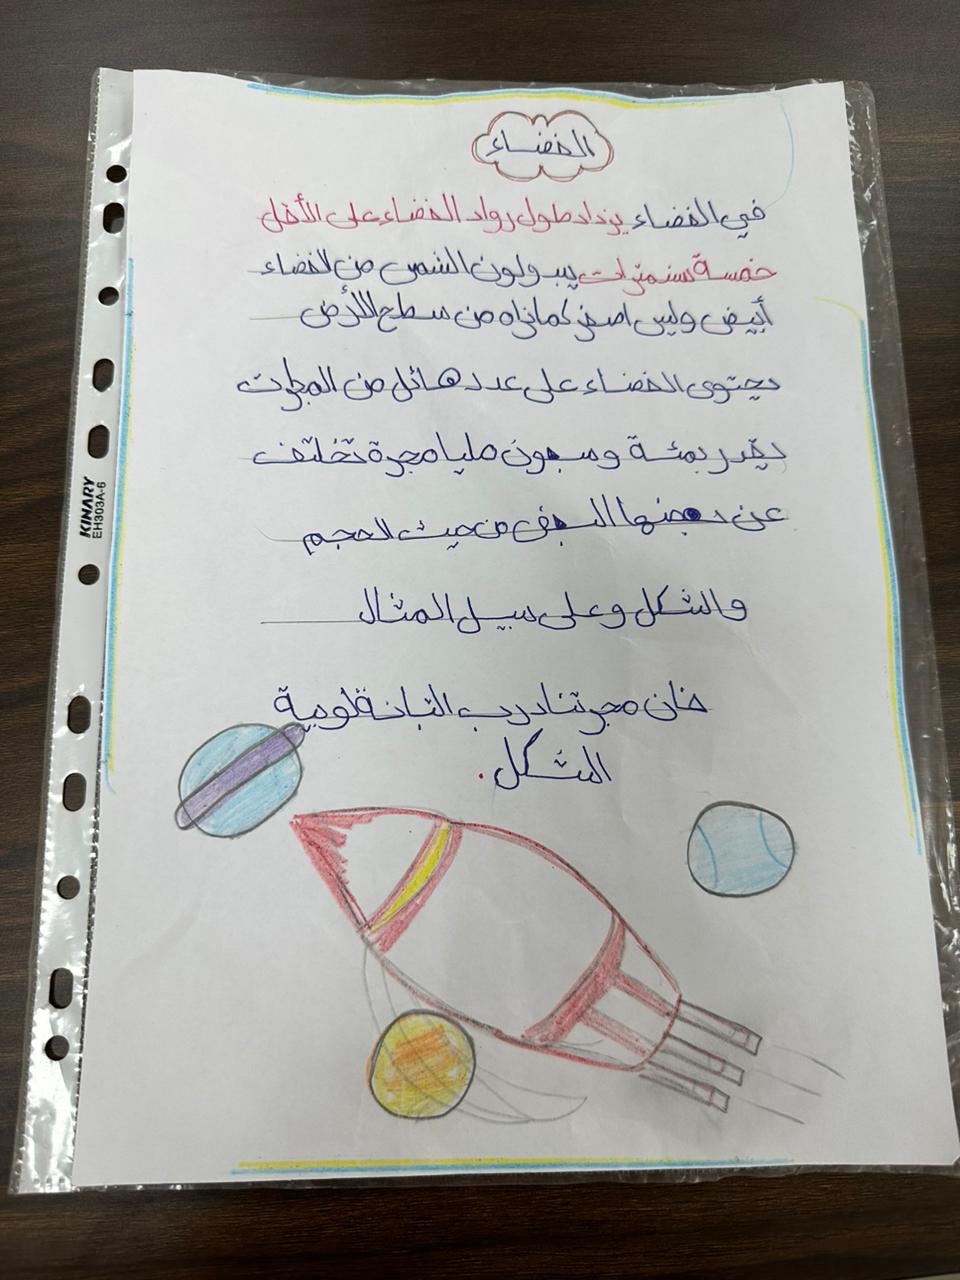 الفضاء
في الفضاء يزداد طول رواد الفضاء على الأقل
خمسة سنمترات يبدو لون الشمس من الفضاء
أبيض وليس اصفر كما نراه من سطح الأرض
يحتوى الفضاء على عدد هائل من المجرات
يقدر بمئة وسبعون مليا مجرة تختلف
عن بعضها البعض من حيث الحجم
والشكل وعلى سبيل المثال
فان مجرتنا درب التبانة لوبية
الشكل.
KINARY
EH303A-6